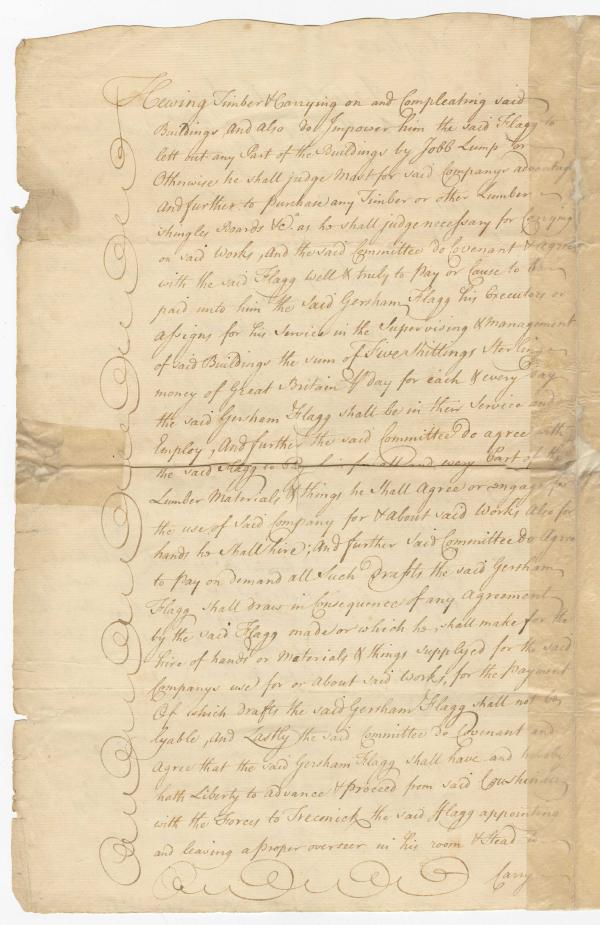 Hewing Timber & Carrying on and Compleating said
Buildings, And also do Impower him the said Flagg to
lett out any Part of the Buildings by Jobb Lump or
Otherwise he shall judge Most for said Companys advantage
And further to Purchase any Timber or other Lumber
shingles Boards &c.a as he shall judge necessary for Carrying
on said Works, And the said Committee do Covenant & agree
with the said Flagg well & truly to Pay or Cause to be
paid unto him the Said Gersham Flagg his Executors or
assigns for his Service in the Supervising & Management
of said Buildings the sum of Five Shillings Sterling
money of Great Britain ⅌ day for each & every Day
the said Gersham Flagg shall be in their Service and
Employ, And further the said Committee Do agree with
the said Flagg to Pay him for all and every Part of the
Lumber Materials & things he Shall Agree or engage for
the use of Said Company for & about said Works, Also for
hands he shall hire; And further Said Committee do Agree
to Pay on demand all Such Drafts the said Gersham
Flagg shall draw in Consequence of any Agreement
by the said Flagg made or which he shall make for the
hire of hands or Materials & things supplyed for the said
Companys use for or about said Works, for the Payment
Of which drafts the said Gersham Flagg shall not be
lyable, And Lastly the said Committee do Covenant and
Agree that the said Gersham Flagg shall have and hereby
hath Liberty to advance & Proceed from said Cushenac
with the Forces to Treconick the said Flagg appointing
and leaving a Proper overseer in his room & Stead to
Carry